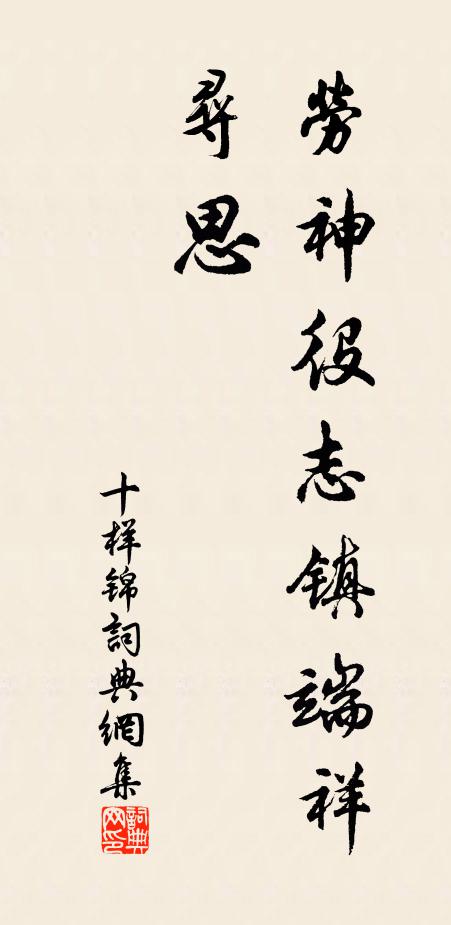 勞神役志鎮端祥
尋思
十样锦詞典網集
詞典
网印